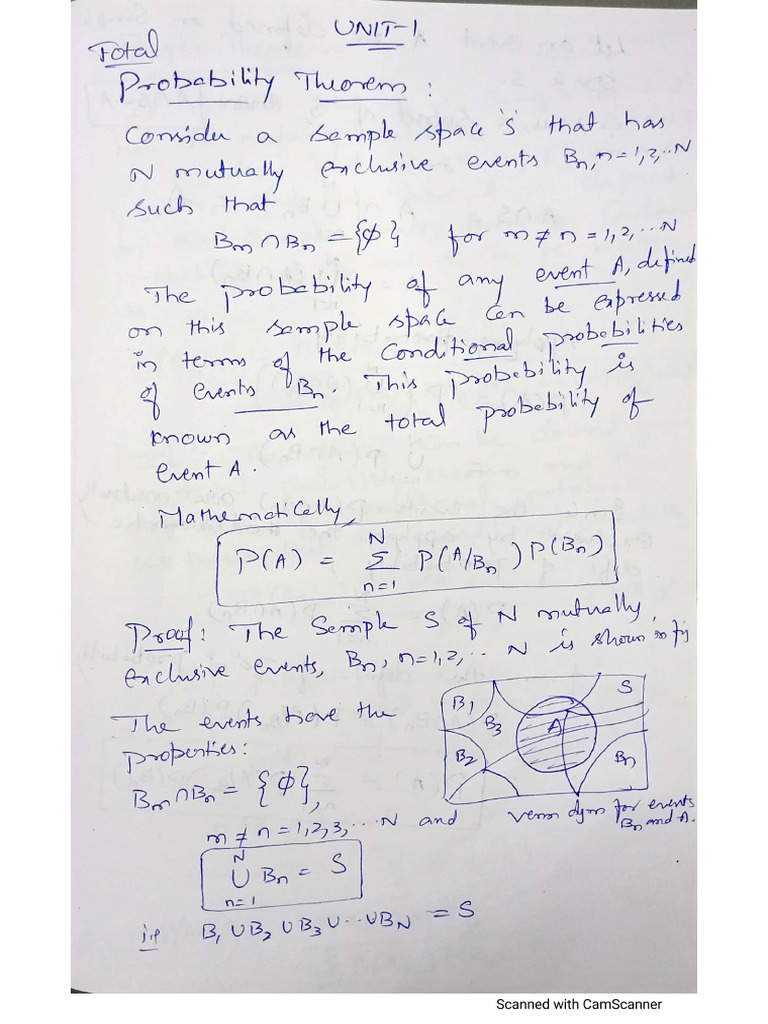 UNIT-1
Total
Probability Theorem :
Consider a sample space 's' that has
N mutually exclusive events Bn, n=1,2,..N
such that
Bm ∩ Bn = {ϕ} for m ≠ n = 1,2,...N
The probability of any event A, defined
on this sample space can be expressed
in terms of the conditional probabilities
of events Bn. This probability is
known as the total probability of
event A.
Mathematically,
P(A) = N Σ n=1 P(A/Bn) P(Bn)
Proof : The Sample S of N mutually
exclusive events, Bn, n=1,2,.. N is shown in fig
The events have the
properties:
Bm ∩ Bn = {ϕ},
m ≠ n = 1,2,3,...N and
N ∪ n=1 Bn = S
ie B1 ∪ B2 ∪ B3 ∪ ... ∪ BN = S
B1 B3 A S
B2 Bn
venn dgm for events
Bn and A.
Scanned with CamScanner